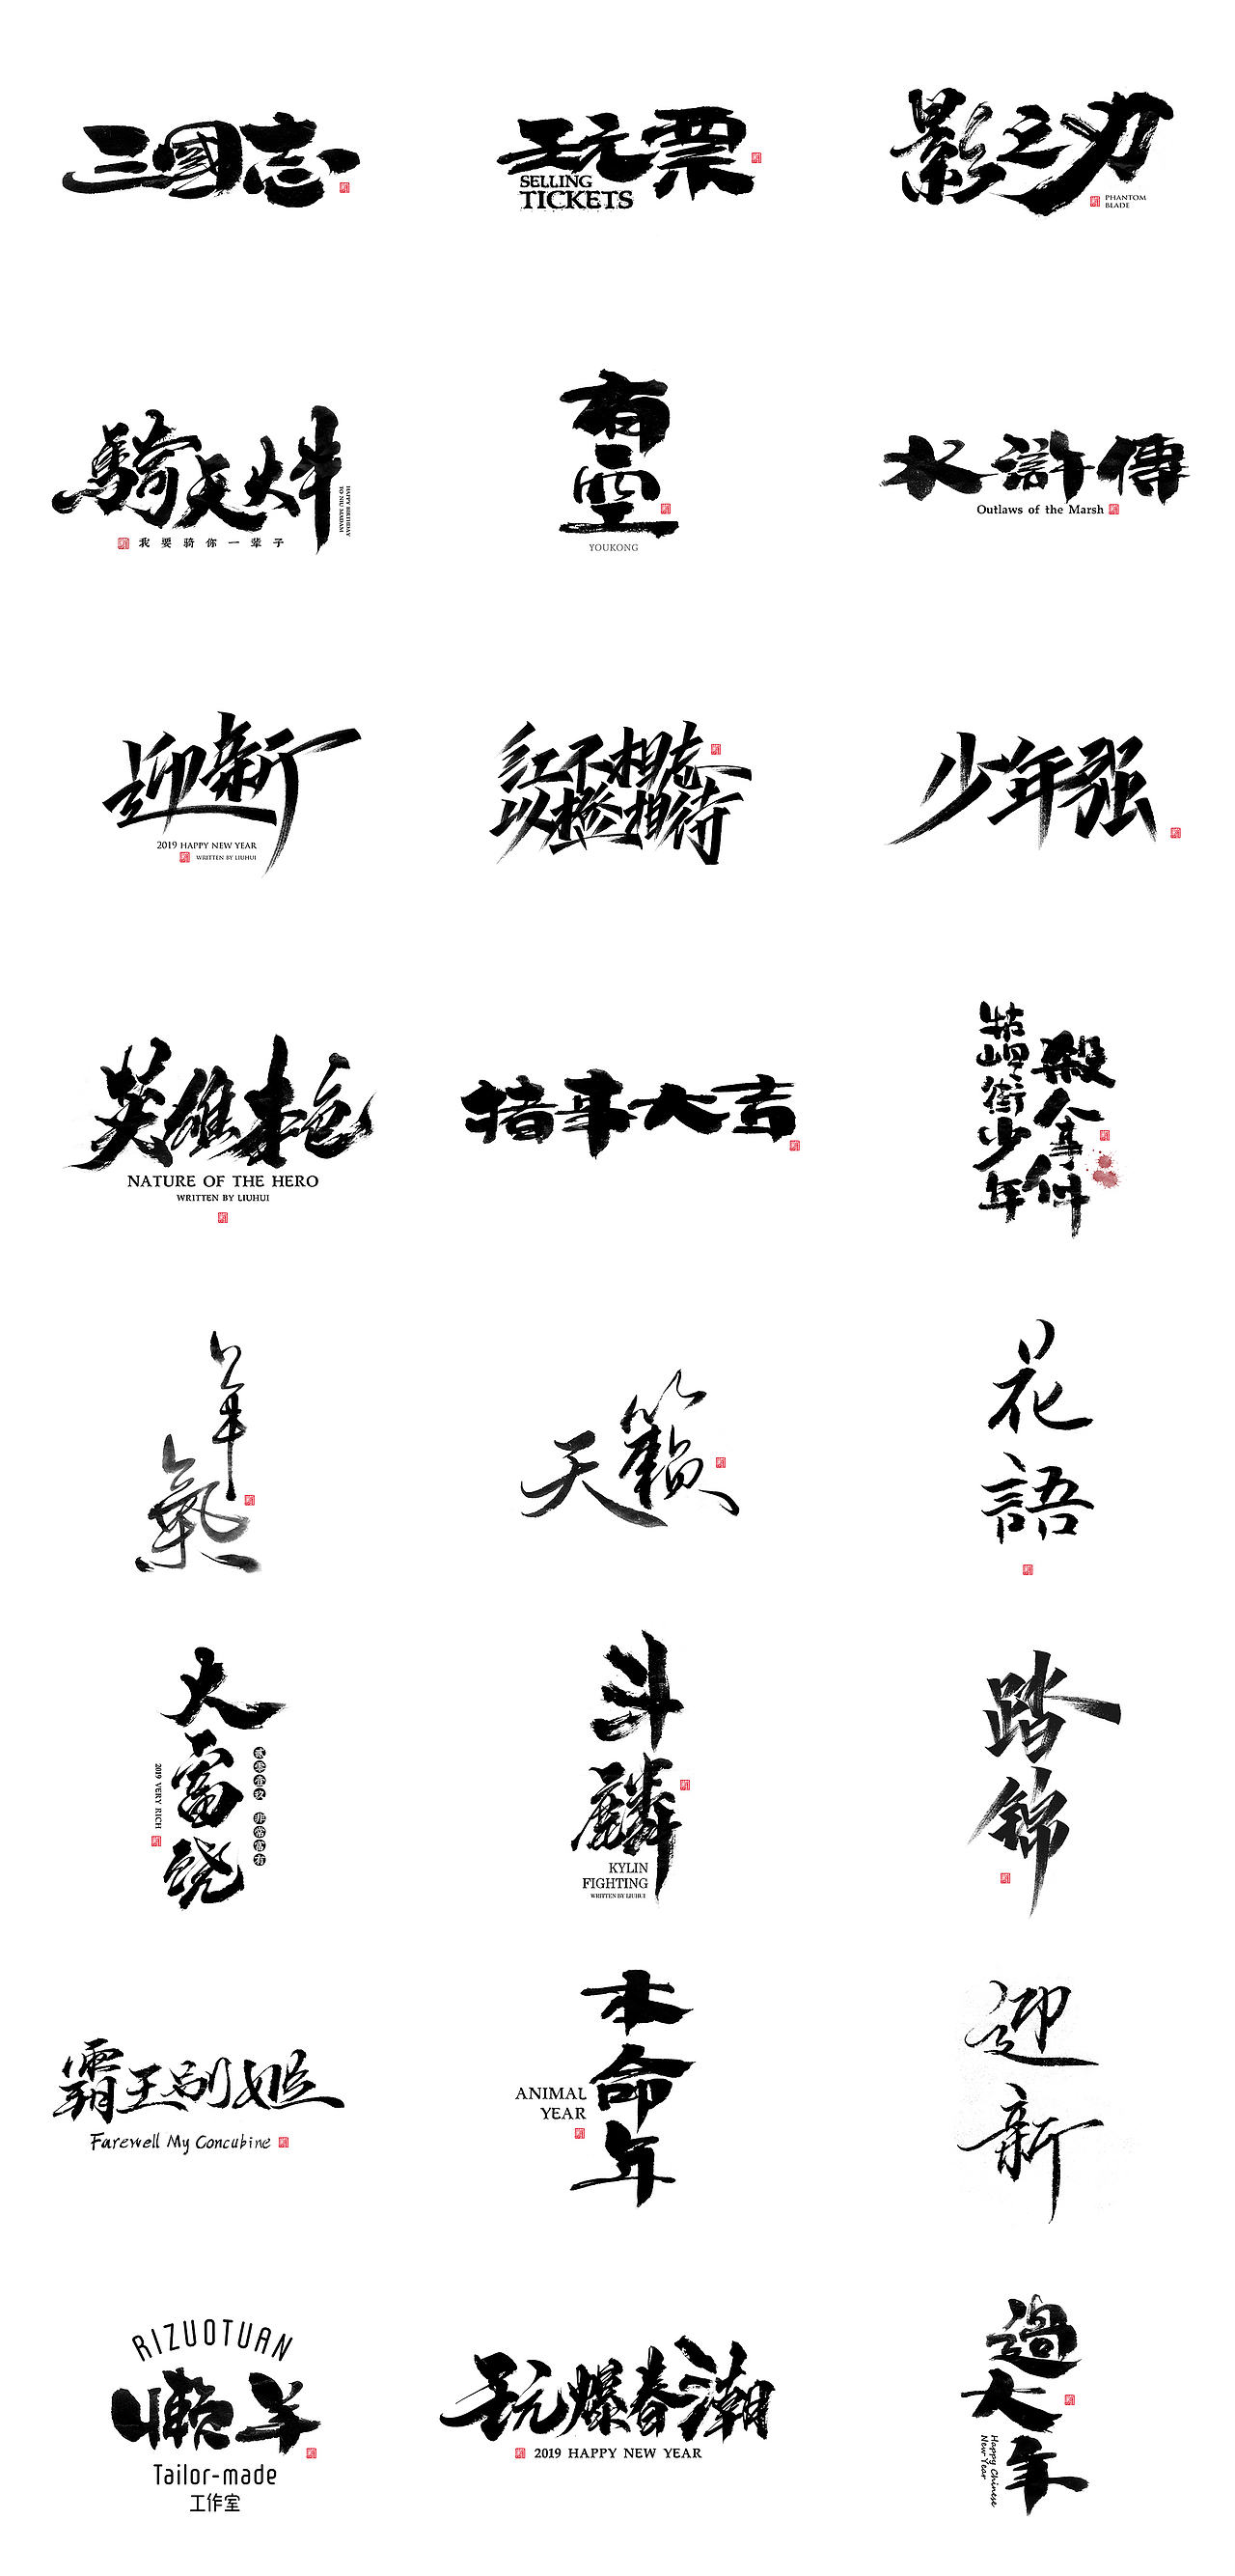 三國志
玩票
SELLING
TICKETS
影之刃
PHANTOM
BLADE
騎天大牛
HAPPY BIRTHDAY
TO NIU MADAM
我要骑你一辈子
有空
YOUKONG
水滸傳
Outlaws of the Marsh
迎新
2019 HAPPY NEW YEAR
WRITTEN BY LIUHUI
红不相忘
以橙相待
少年强
英雄本色
NATURE OF THE HERO
WRITTEN BY LIUHUI
猪事大吉
牯岭街少年
殺人事件
年氣
天籁
花語
大富饶
2019 VERY RICH
贰零壹玖 非常富有
斗麟
KYLIN
FIGHTING
WRITTEN BY LIUHUI
踏锦
霸王别姬
Farewell My Concubine
本命年
ANIMAL
YEAR
迎新
RIZUOTUAN
懒羊
Tailor-made
工作室
玩爆春潮
2019 HAPPY NEW YEAR
過大年
Happy Chinese
New Year